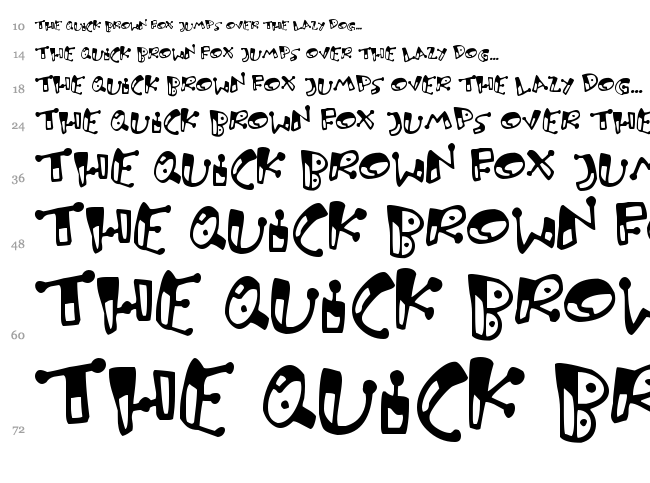 10 THE QUiCK BROWN FOX JUMPS OVER THE LAZY DOG...
14 THE QUiCK BROWN FOX JUMPS OVER THE LAZY DOG...
18 THE QUiCK BROWN FOX JUMPS OVER THE LAZY DOG...
24 THE QUiCK BROWN FOX JUMPS OVER THE
36 THE QUiCK BROWN FOX JUM
48 THE QUiCK BROWN FO
60 THE QUiCK BROW
72 THE QUiCK BR